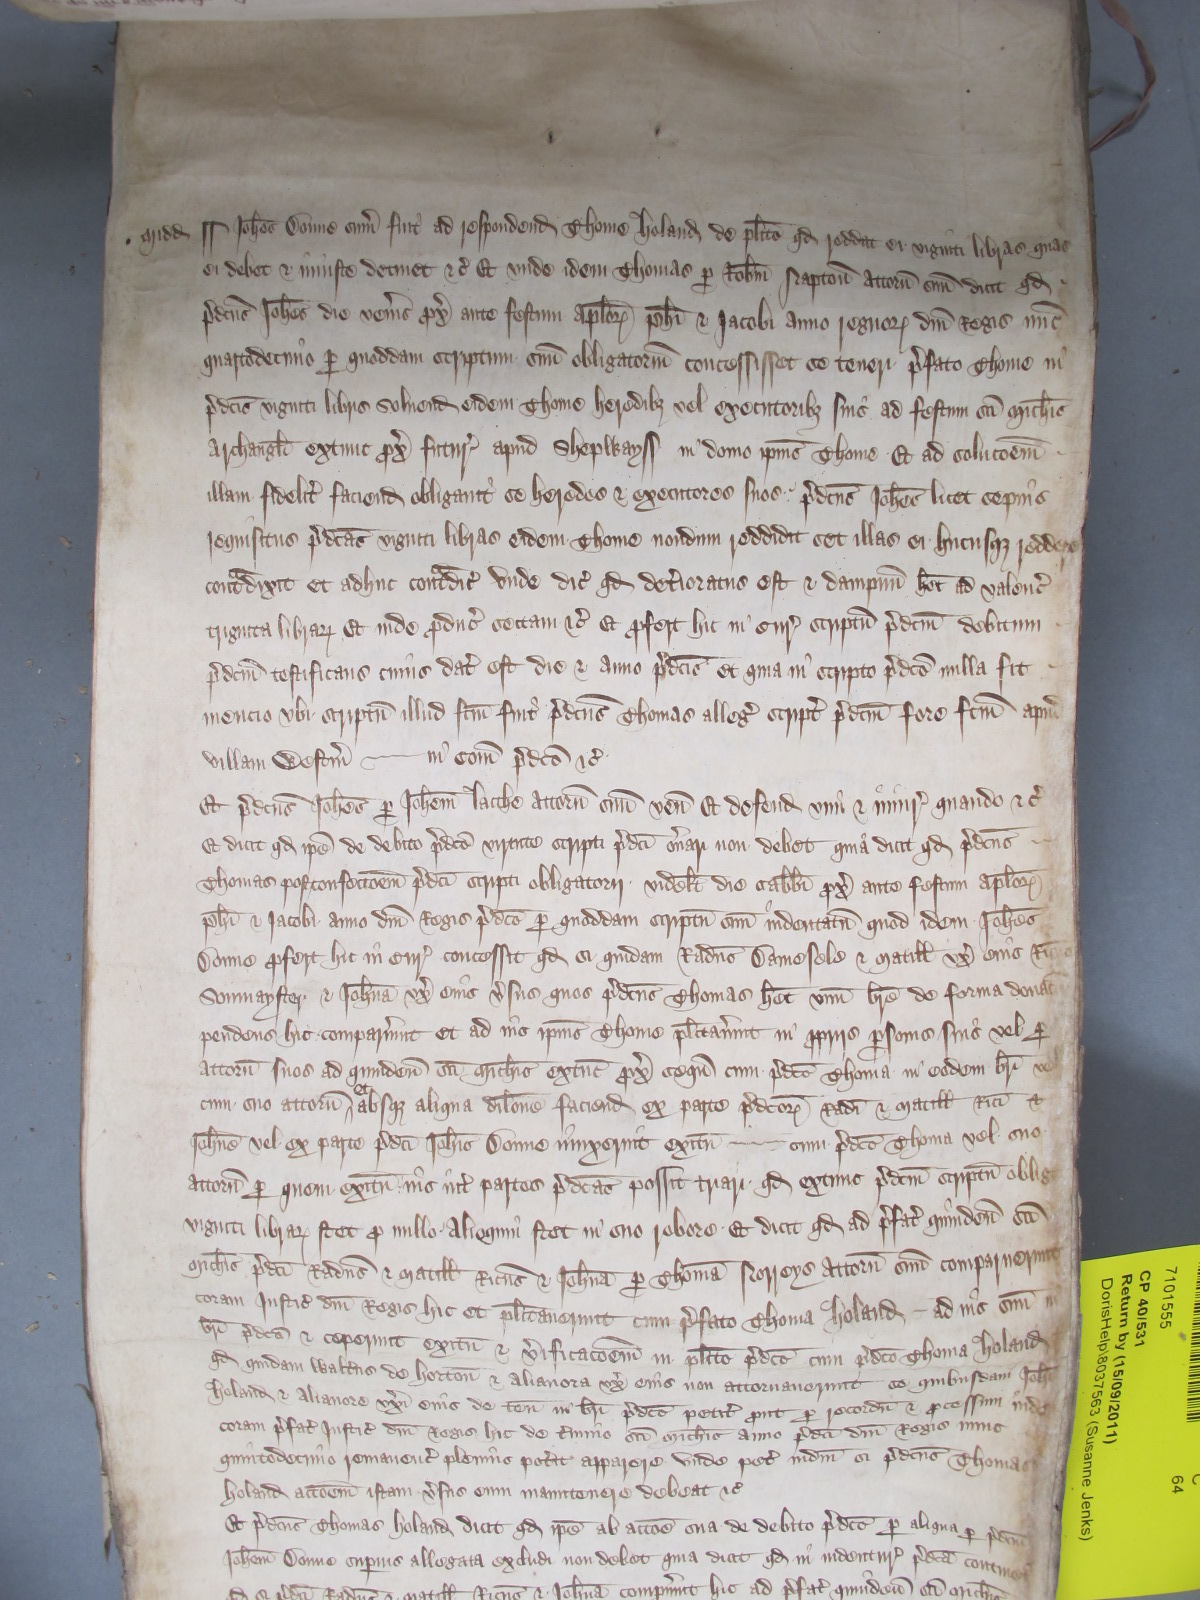 Midd ss Joh̄es Donne sum̄ fuit ad respondend Thome Holand de pl̄ito qd reddat ei viginti libras quas
ei debet & iniuste detinet &c̄ Et unde idem Thomas p Rob̄tm attorn̄ suū dicit qd
p̄dcūs Joh̄es die ven̄is px̄ ante festum Apl̄or Ph̄i & Jacobi anno regnor dn̄i Regis nūc
quartodecimo p quoddam scriptum suū obligatoriū concessisset se teneri p̄fato Thome in
p̄dcīs viginti libris solvend eidem Thome heredibz vel executoribz suis ad festum sc̄i Mich̄is
Archanḡli extunc px̄ futur apud Shepwayss in domo ipīus Thome Et ad soluc̄oem
illam fidelit̄ faciend obligavit se heredes & executores suos p̄dcūs Joh̄es licet sepius
requisitus p̄dcās viginti libras eidem Thome nondum reddidit set illas ei hucusqz reddere
cont̄dixit et adhuc cont̄dic̄ Unde dic̄ qd det̄ioratus est & dampnū h̄et ad valenc̄
triginta librar Et inde p̄duc̄ sectam &c̄ Et p̄fert hic in cur scriptū p̄dcm̄ debitum
p̄dcm̄ testificans cuius dat̄ est die & anno p̄dcīs Et quia in scripto p̄dcō nulla fit
mencio ubi scriptū illud fcm̄ fuit p̄dcūs Thomas alleḡ script̄ p̄dcm̄ fore fcm̄ apud
villam Westm̄ in Com̄ p̄dcō &c̄
Et p̄dcūs Joh̄es p Joh̄em Lacche attorn̄ suū ven̄ Et defend vim & iniur quando &c̄
Et dicit qd ip̄e de debito p̄dcō virtute scripti p̄dcī on̄ari non debet quia dicit qd p̄dcūs
Thomas post confecc̄oem p̄dcī scripti obligatorii videl̄t die sabb̄i px̄ ante festum Apl̄or
Ph̄i & Jacobi anno dn̄i Regis p̄dcō p quoddam scriptū suū indentatū quod idem Joh̄es
Donne p̄fert hic in cur concessit qd si quidam Rad̄us Damesele & Matill̄ ux̄ eius Ric̄us
& Joh̄na ux̄ eius v̄sus quos p̄dcūs Thomas h̄et unū br̄e de forma donac̄
pendens hic comparuerint et ad nis ipīus Thome pl̄itav̄int in ppriis p̄sonis suis vel p
attorn̄ suos ad quindenā sc̄i Mich̄is extūc px̄ seqū cum p̄dcō Thoma in eodem br̄i vel
cum suo attorn̄ et absqz aliqua dilōne faciend ex parte p̄dcōr Rad̄i & Matill̄ Ric̄i &
Joh̄ne vel ex parte p̄dcī Joh̄is Donne iunxerint exitū cum p̄dcō Thoma vel suo
attorn̄ p quem exitū ius int̄ partes p̄dcās possit triari qd extunc p̄dcm̄ scriptū oblig
viginti librar stet p nullo Alioquin stet in suo robore Et dicit qd ad p̄fat̄ quindenā sc̄i
Mich̄is p̄dcī Rad̄us & Matill̄ Ric̄us & Joh̄na p Thomā Norreys attorn̄ suū comparuerunt
coram Justic̄ dn̄i Regis hic et pl̄itaverunt cum p̄fato Thoma Holand ad nis suū in
br̄i p̄dcō & ceperunt exitū & v̄ificac̄oem in pl̄ito p̄dcō cum p̄dcō Thoma Holand
qd quidam Walt̄us de Horton̄ & Alianora ux̄ eius non attornaverunt se quibusdam Joh̄i
Holand & Alianore ux̄i eius de ten̄ in br̄i p̄dcō petit̄ prout p recordū & processum inde
coram p̄fat̄ Justic̄ dn̄i Regis hic de t̄mino sc̄i Mich̄is anno p̄dcī dn̄i Regis nunc
quintodecimo remanenc̄ plenius pot̄it apparere Unde pet̄ iudm̄ si p̄dcūs Thomas
Holand acc̄oem istam v̄sus eum manutenere debeat &c̄
Et p̄dcūs Thomas Holand dicit qd ip̄e ab acc̄oe sua de debito p̄dcō p aliqua p p̄dcm̄
Joh̄em Donne superius allegata excludi non debet quia dicit qd in indentur p̄dcā continet
qd si p̄dcī Rad̄us & Matill̄ Ric̄us & Joh̄na comp̄uint hic ad p̄fat̄ quindenā sc̄i Mich̄is
7101555
CP 40/531
Return by (15/09/2011)
DorisHelp\8037563 (Susanne Jenks)
64